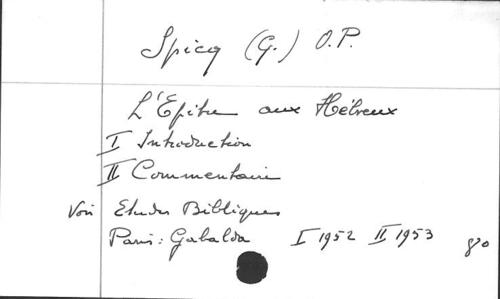 Spicq (G.) O.P.
L'Epitre aux Hébreux
I Introduction
II Commentaire
Voir Etudes Bibliques
Paris: Gabalda I 1952 II 1953 8°